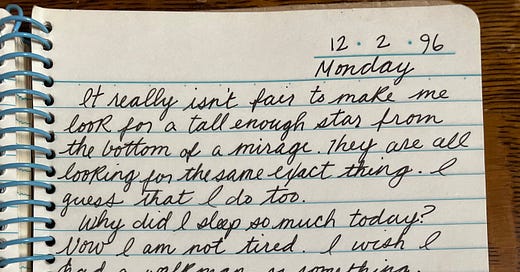 12 · 2 · 96
Monday
It really isn't fair to make me
look for a tall enough star from
the bottom of a mirage. They are all
looking for the same exact thing. I
guess that I do too.
Why did I sleep so much today?
Now I am not tired. I wish I
had a walkman or something.